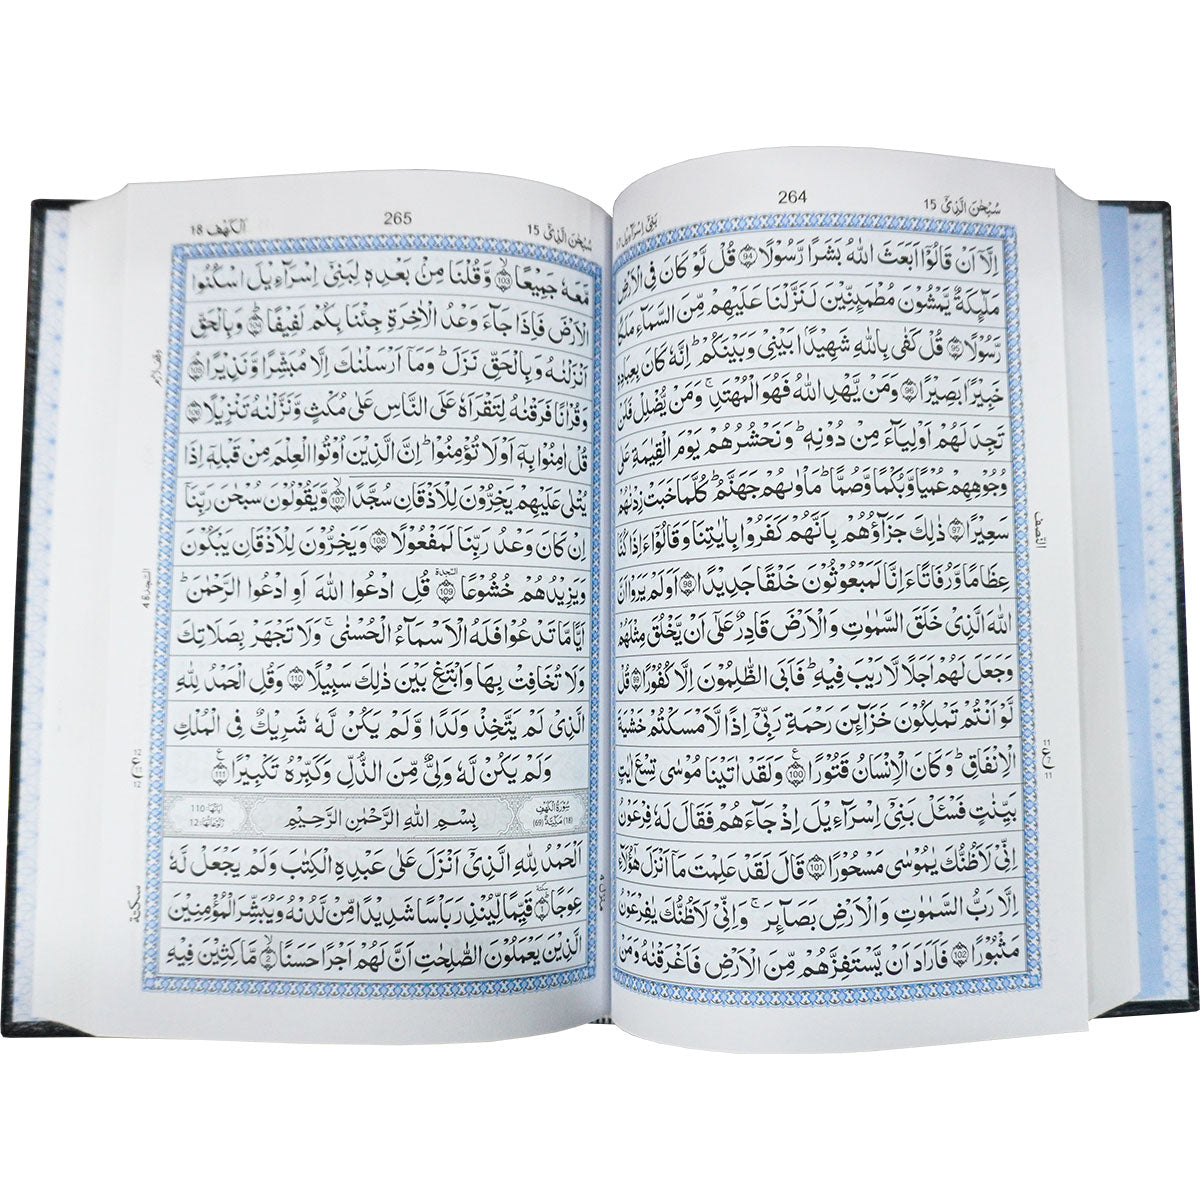 سُبْحٰنَ الَّذِيْٓ 15
264
بَنِيْٓ اِسْرَآءِيْلَ
اِلَّآ اَنْ قَالُوْٓا اَبَعَثَ اللّٰهُ بَشَرًا رَّسُوْلًا 94 قُلْ لَّوْ كَانَ فِى الْاَرْضِ
مَلٰٓئِكَةٌ يَّمْشُوْنَ مُطْمَئِنِّيْنَ لَنَزَّلْنَا عَلَيْهِمْ مِّنَ السَّمَآءِ مَلَكًا
رَّسُوْلًا 95 قُلْ كَفٰى بِاللّٰهِ شَهِيْدًۢا بَيْنِيْ وَبَيْنَكُمْ ؕ اِنَّهٗ كَانَ بِعِبَادِهٖ
خَبِيْرًۢا بَصِيْرًا 96 وَمَنْ يَّهْدِ اللّٰهُ فَهُوَ الْمُهْتَدِ ۚ وَمَنْ يُّضْلِلْ فَلَنْ
تَجِدَ لَهُمْ اَوْلِيَآءَ مِنْ دُوْنِهٖ ؕ وَنَحْشُرُهُمْ يَوْمَ الْقِيٰمَةِ عَلٰى
وُجُوْهِهِمْ عُمْيًا وَّبُكْمًا وَّصُمًّا ؕ مَاْوٰىهُمْ جَهَنَّمُ ؕ كُلَّمَا خَبَتْ زِدْنٰهُمْ
سَعِيْرًا 97 ذٰلِكَ جَزَآؤُهُمْ بِاَنَّهُمْ كَفَرُوْا بِاٰيٰتِنَا وَقَالُوْٓا ءَاِذَا كُنَّا
عِظَامًا وَّرُفَاتًا ءَاِنَّا لَمَبْعُوْثُوْنَ خَلْقًا جَدِيْدًا 98 اَوَلَمْ يَرَوْا اَنَّ
اللّٰهَ الَّذِيْ خَلَقَ السَّمٰوٰتِ وَالْاَرْضَ قَادِرٌ عَلٰٓى اَنْ يَّخْلُقَ مِثْلَهُمْ
وَجَعَلَ لَهُمْ اَجَلًا لَّا رَيْبَ فِيْهِ ؕ فَاَبَى الظّٰلِمُوْنَ اِلَّا كُفُوْرًا 99 قُلْ
لَّوْ اَنْتُمْ تَمْلِكُوْنَ خَزَآئِنَ رَحْمَةِ رَبِّيْٓ اِذًا لَّاَمْسَكْتُمْ خَشْيَةَ
الْاِنْفَاقِ ؕ وَكَانَ الْاِنْسَانُ قَتُوْرًا 100 وَلَقَدْ اٰتَيْنَا مُوْسٰى تِسْعَ اٰيٰتٍۢ
بَيِّنٰتٍ فَسْـَٔلْ بَنِيْٓ اِسْرَآءِيْلَ اِذْ جَآءَهُمْ فَقَالَ لَهٗ فِرْعَوْنُ
اِنِّيْ لَاَظُنُّكَ يٰمُوْسٰى مَسْحُوْرًا 101 قَالَ لَقَدْ عَلِمْتَ مَآ اَنْزَلَ هٰٓؤُلَآءِ
اِلَّا رَبُّ السَّمٰوٰتِ وَالْاَرْضِ بَصَآئِرَ ۚ وَاِنِّيْ لَاَظُنُّكَ يٰفِرْعَوْنُ
مَثْبُوْرًا 102 فَاَرَادَ اَنْ يَّسْتَفِزَّهُمْ مِّنَ الْاَرْضِ فَاَغْرَقْنٰهُ وَمَنْ
النِّصْف
11
ع
11
سُبْحٰنَ الَّذِيْٓ 15
265
اَلْكَهْف 18
مَّعَهٗ جَمِيْعًا 103 وَّقُلْنَا مِنْۢ بَعْدِهٖ لِبَنِيْٓ اِسْرَآءِيْلَ اسْكُنُوا
الْاَرْضَ فَاِذَا جَآءَ وَعْدُ الْاٰخِرَةِ جِئْنَا بِكُمْ لَفِيْفًا ؕ 104 وَبِالْحَقِّ
اَنْزَلْنٰهُ وَبِالْحَقِّ نَزَلَ ؕ وَمَآ اَرْسَلْنٰكَ اِلَّا مُبَشِّرًا وَّنَذِيْرًا 105
وَقُرْاٰنًا فَرَقْنٰهُ لِتَقْرَاَهٗ عَلَى النَّاسِ عَلٰى مُكْثٍ وَّنَزَّلْنٰهُ تَنْزِيْلًا 106
قُلْ اٰمِنُوْا بِهٖٓ اَوْ لَا تُؤْمِنُوْا ؕ اِنَّ الَّذِيْنَ اُوْتُوا الْعِلْمَ مِنْ قَبْلِهٖٓ اِذَا
يُتْلٰى عَلَيْهِمْ يَخِرُّوْنَ لِلْاَذْقَانِ سُجَّدًا 107 وَّيَقُوْلُوْنَ سُبْحٰنَ رَبِّنَآ
اِنْ كَانَ وَعْدُ رَبِّنَا لَمَفْعُوْلًا 108 وَيَخِرُّوْنَ لِلْاَذْقَانِ يَبْكُوْنَ
وَيَزِيْدُهُمْ خُشُوْعًا 109 السَّجْدَة قُلِ ادْعُوا اللّٰهَ اَوِ ادْعُوا الرَّحْمٰنَ ؕ
اَيًّا مَّا تَدْعُوْا فَلَهُ الْاَسْمَآءُ الْحُسْنٰى ۚ وَلَا تَجْهَرْ بِصَلَاتِكَ
وَلَا تُخَافِتْ بِهَا وَابْتَغِ بَيْنَ ذٰلِكَ سَبِيْلًا 110 وَقُلِ الْحَمْدُ لِلّٰهِ
الَّذِيْ لَمْ يَتَّخِذْ وَلَدًا وَّلَمْ يَكُنْ لَّهٗ شَرِيْكٌ فِى الْمُلْكِ
وَلَمْ يَكُنْ لَّهٗ وَلِيٌّ مِّنَ الذُّلِّ وَكَبِّرْهُ تَكْبِيْرًا 111
سُوْرَةُ الْكَهْفِ (18) مَكِّيَّةٌ (69)
بِسْمِ اللّٰهِ الرَّحْمٰنِ الرَّحِيْمِ
اٰيَاتُهَا- 110 رُكُوْعَاتُهَا- 12
اَلْحَمْدُ لِلّٰهِ الَّذِيْٓ اَنْزَلَ عَلٰى عَبْدِهِ الْكِتٰبَ وَلَمْ يَجْعَلْ لَّهٗ
عِوَجًا 1 قَيِّمًا لِّيُنْذِرَ بَاْسًا شَدِيْدًا مِّنْ لَّدُنْهُ وَيُبَشِّرَ الْمُؤْمِنِيْنَ
الَّذِيْنَ يَعْمَلُوْنَ الصّٰلِحٰتِ اَنَّ لَهُمْ اَجْرًا حَسَنًا 2 مَّاكِثِيْنَ فِيْهِ
السَّجْدَة 4
12
ع
12
سكتة